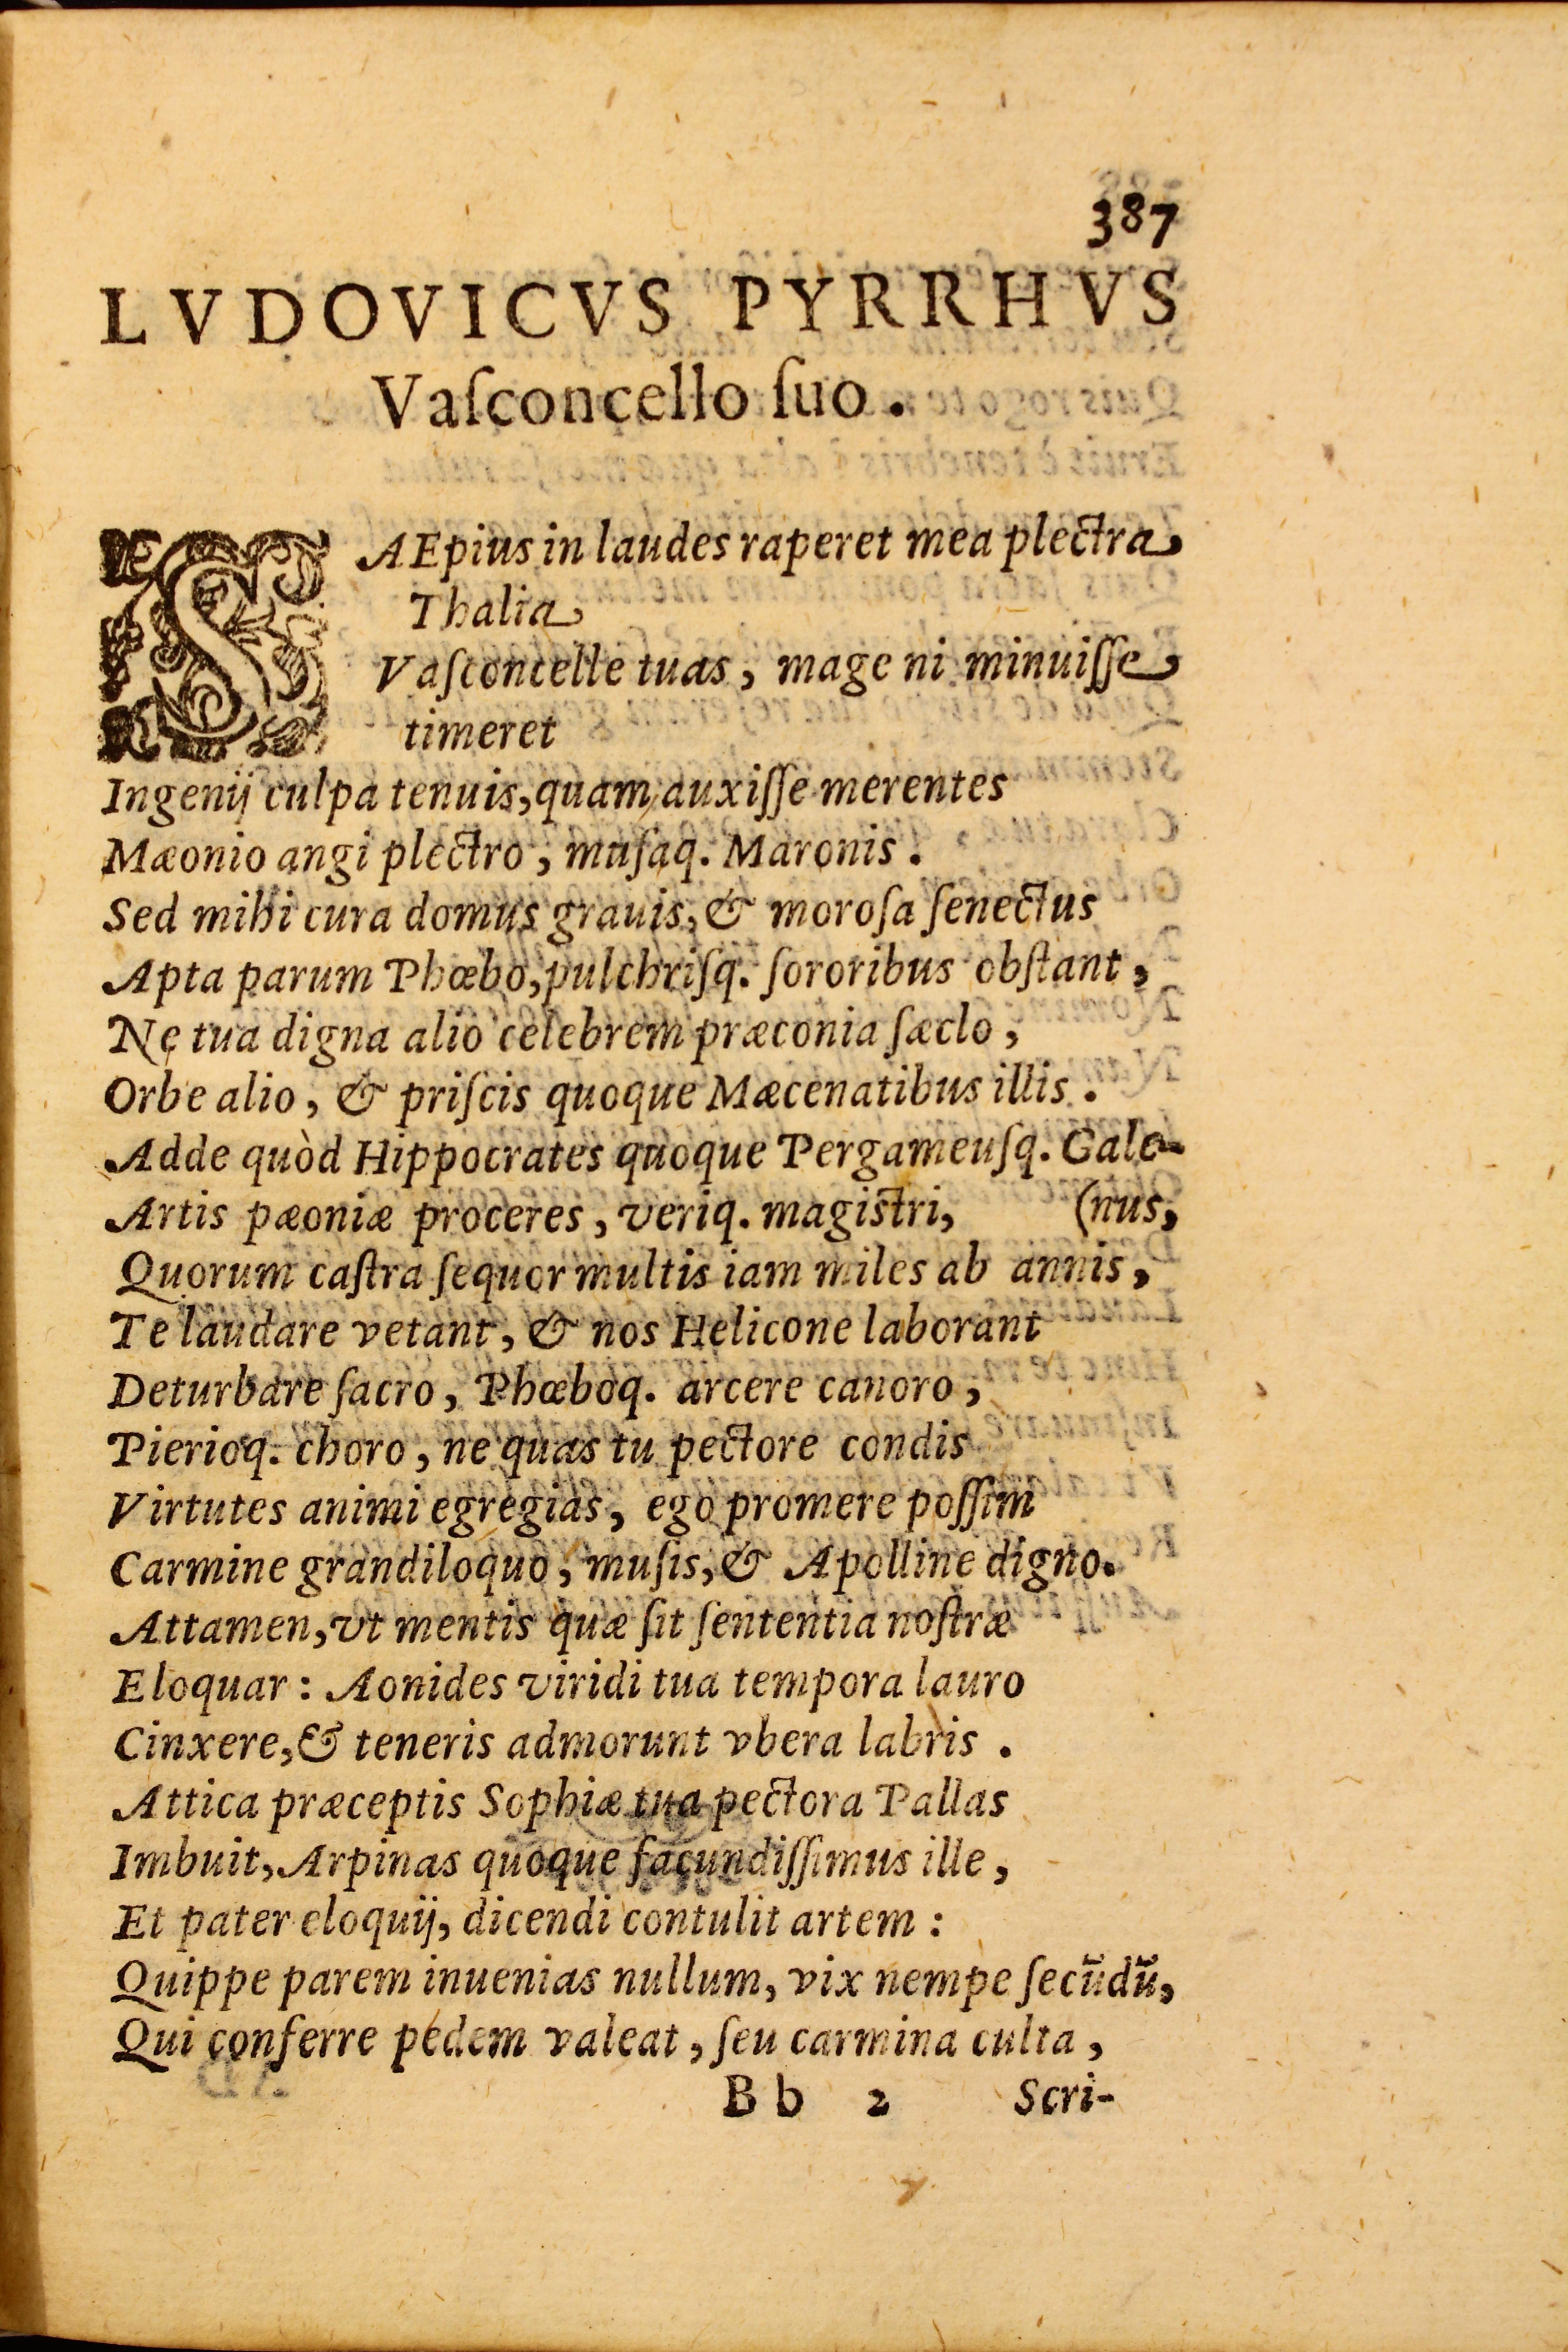 387
LVDOVICVS PYRRHVS
Vaſconcello ſuo.
SAEpius in laudes raperet mea plectra
Thalia
Vaſconcelle tuas, mage ni minuiſſe
timeret
Ingenij culpa tenuis, quam auxiſſe merentes
Mæonio angi plectro, muſaq. Maronis.
Sed mihi cura domus grauis, & moroſa ſenectus
Apta parum Phœbo, pulchriſq. ſororibus obſtant,
Ne tua digna alio celebrem præconia ſæclo,
Orbe alio, & priſcis quoque Mæcenatibus illis.
Adde quòd Hippocrates quoque Pergameuſq. Gale-
Artis pæoniæ proceres, veriq. magiſtri, (nus,
Quorum caſtra ſequor multis iam miles ab annis,
Te laudare vetant, & nos Helicone laborant
Deturbare ſacro, Phœboq. arcere canoro,
Pierioq. choro, ne quas tu pectore condis
Virtutes animi egregias, ego promere poſſim
Carmine grandiloquo, muſis, & Apolline digno.
Attamen, vt mentis quæ ſit ſententia noſtræ
Eloquar: Aonides viridi tua tempora lauro
Cinxere, & teneris admorunt vbera labris.
Attica præceptis Sophiæ tua pectora Pallas
Imbuit, Arpinas quoque facundiſſimus ille,
Et pater eloquij, dicendi contulit artem:
Quippe parem inuenias nullum, vix nempe ſecũdũ,
Qui conferre pedem valeat, ſeu carmina culta,
Bb 2 Scri-